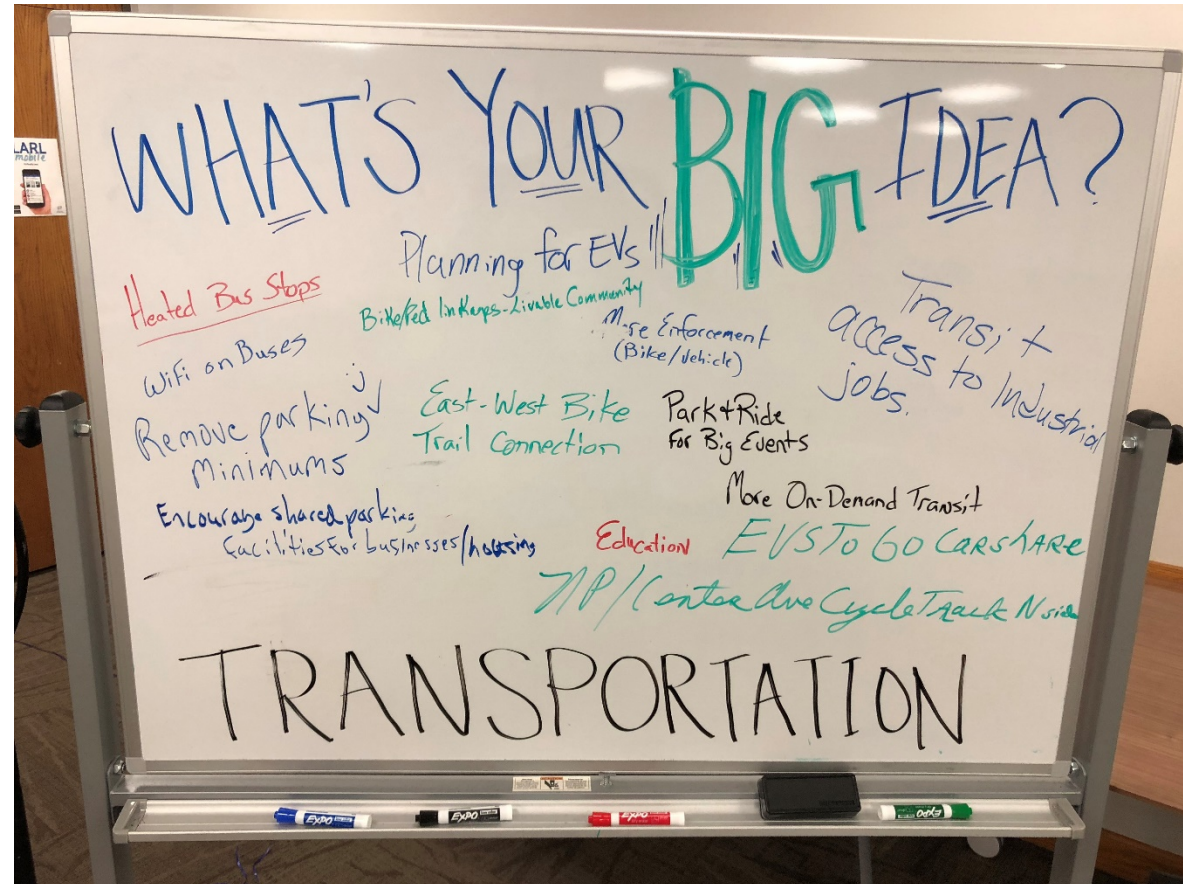 WHAT'S YOUR BIG IDEA?
LARL
mobile
Planning for EVs
Heated Bus Stops
Bike/Ped linkages-Livable Community
More Enforcement
(Bike/Vehicle)
Transit
access to Industrial
jobs.
WiFi on Buses
Remove parking
minimums
East-West Bike
Trail Connection
Park & Ride
For Big Events
Encourage shared parking
facilities for businesses/housing
More On-Demand Transit
Education
EVS To GO CARSHARE
NP/Center Ave Cycle Track N side
TRANSPORTATION
EXPO
EXPO
EXPO
EXPO